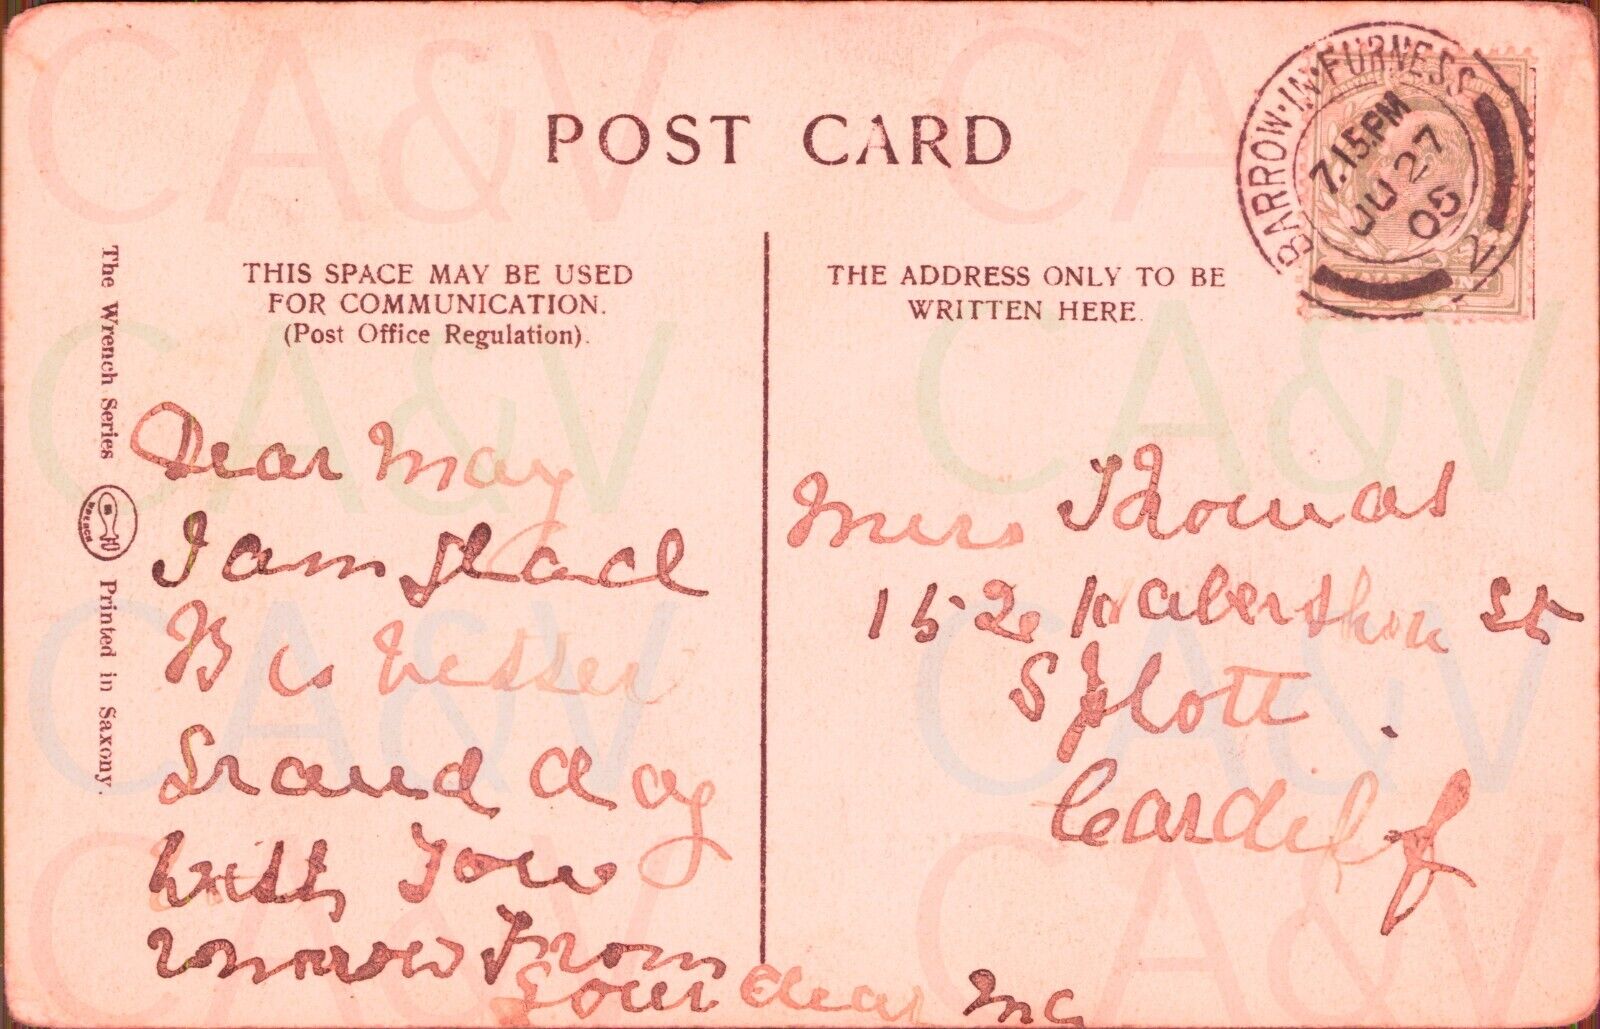 POST CARD
BARROW·IN·FURNESS
7.15.PM
JU 27
05
2
THIS SPACE MAY BE USED
FOR COMMUNICATION.
(Post Office Regulation).
THE ADDRESS ONLY TO BE
WRITTEN HERE.
The Wrench Series
Printed in Saxony.
Dear May
I am glad
B is better
Grand day
with
from
Your dear
Thomas
152 Habershon St
Splott
Cardiff
CA&V
CA&V
CA&V
CA&V
CA&V
CA&V
CA&V
CA&V